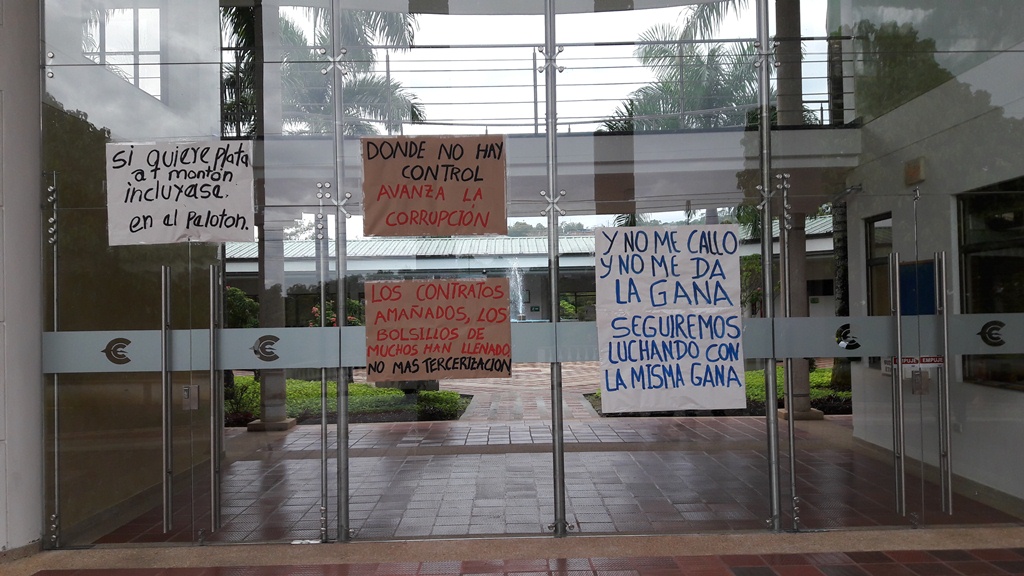 Si quiere plata
a1 montón
incluyase.
en al Paloton.
DONDE NO HAY
CONTROL
AVANZA LA
CORRUPCIÓN
LOS CONTRATOS
AMAÑADOS, LOS
BOLSILLOS DE
MUCHOS HAN LLENADO
NO MAS TERCERIZACION
Y NO ME CALLO
Y NO ME DA
LA GANA
SEGUIREMOS
LUCHANDO CON
LA MISMA GANA
EMPUJE EMPUJE